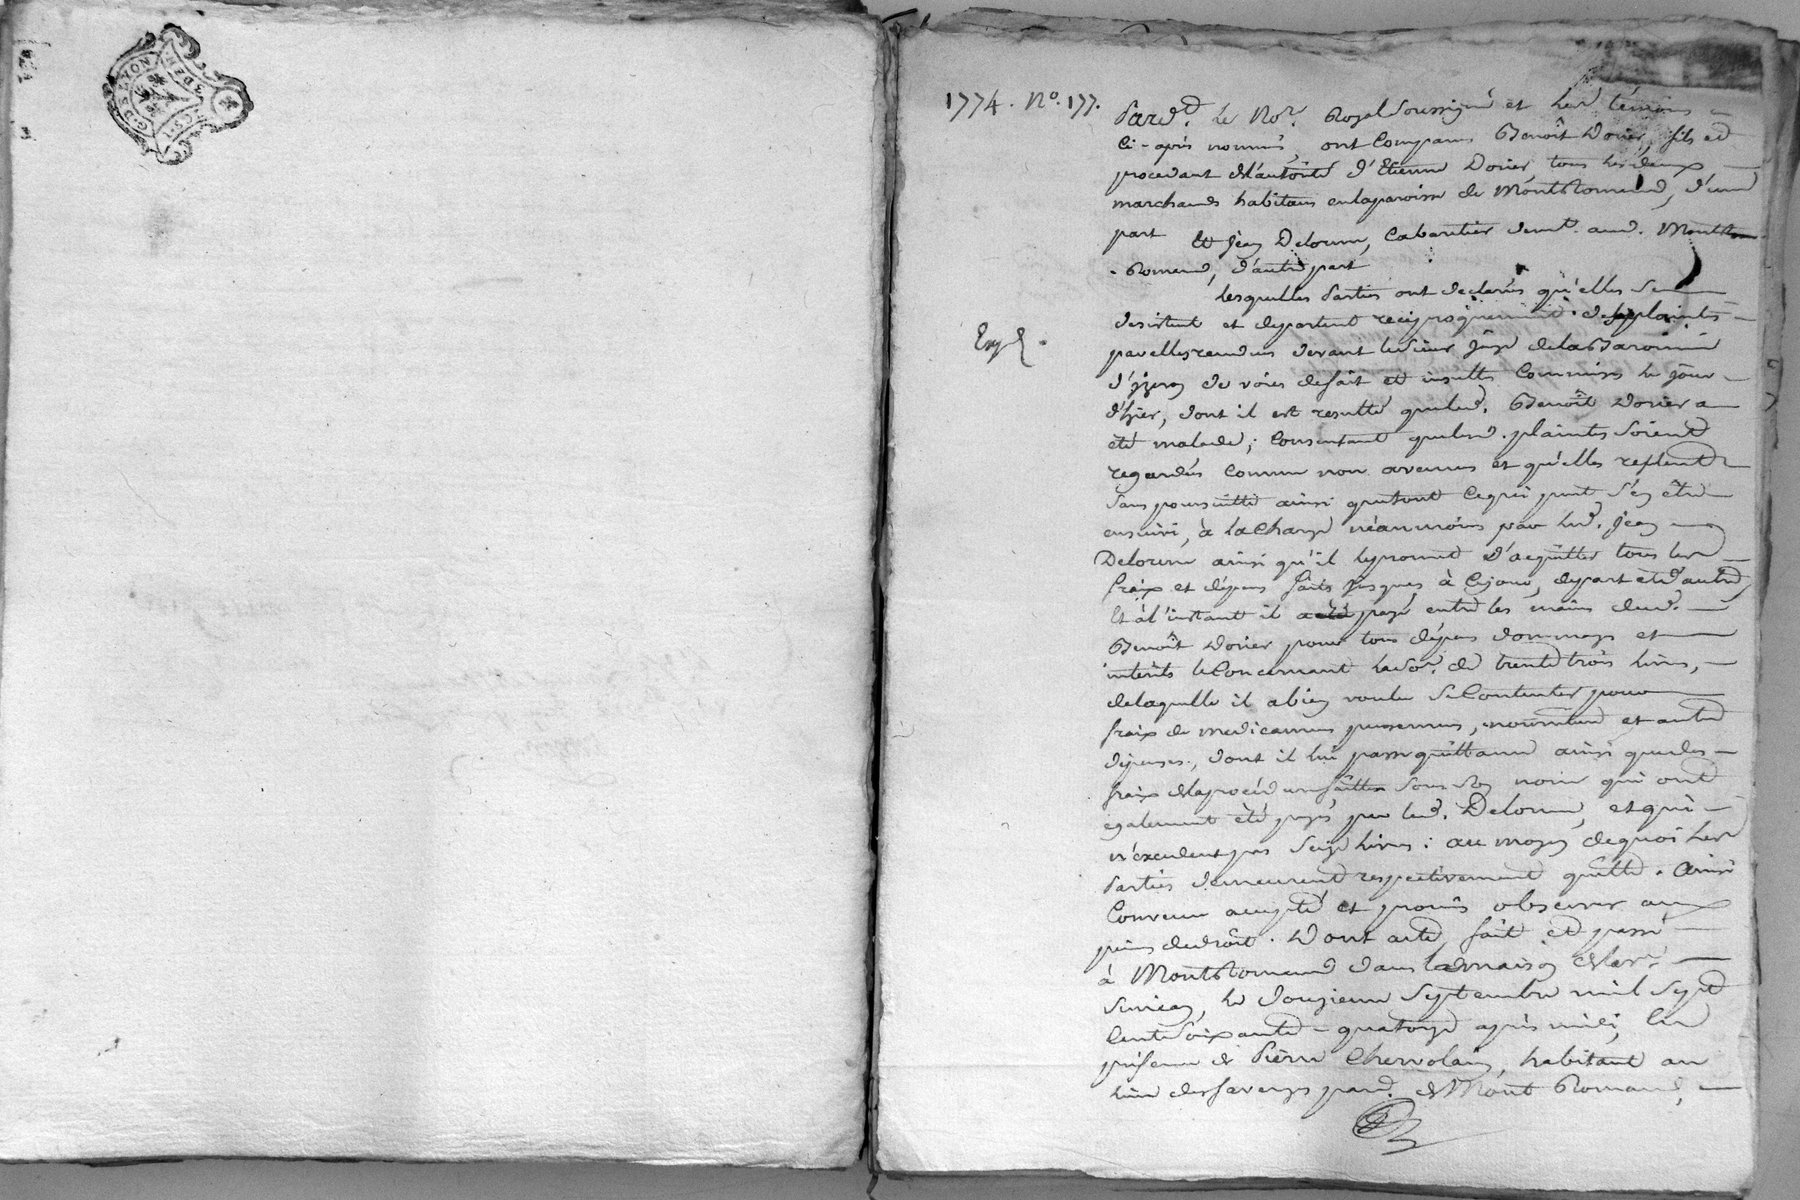 G. DE LYON
3 DEN
1774. N°. 177.
Pard.t le No.re Royal soussigné et les témoins
ci-après nommés, ont comparu Benoît Dorier, fils et
procedant de l'autorité d'Etienne Dorier, tous les deux
marchands habitans en la paroisse de MontRomand, d'une
part Et Jean Delorme, Cabaretier dem.t aud. Mont
Romand, d'autre part
Lesquelles Parties ont declarés qu'elles se
desistent et departent reciproquement des plaintes
par elles rendues devant le sieur Juge de la Baronnie
d'Yzeron de voies de fait et insultes commises le jour
d'hier, dont il est resulté que led. Benoît Dorier a
Exp.é
été malade; consentant que lesd. plaintes soient
regardées comme non avenues et qu'elles restent
sans poursuitte ainsi que tout ce qui peut s'en être
ensuivi, à la charge néanmoins par led. Jean
Delorme ainsi qu'il le promet d'acquitter tous les
fraix et dépens faits jusques à ce jour, de part et d'autre
Et à l'instant il a payé entre les mains dud.
Benoît Dorier pour tous dépens dommages et
intérêts le concernant la so.e de trente trois livres,
de laquelle il a bien voulu se contenter pour
fraix de medicamens pansemens, nourriture et autres
dépenses, dont il lui passe quittance ainsi que des
fraix de la procédure faitte sous son nom qui ont
egalement été payés par led. Delorme, et qui
n'excedent pas seize livres: au moyen de quoi les
Parties demeurent respectivement quittes. Ainsi
convenu accepté et promis observer aux
peines de droit. Dont acte, fait et passé
à MontRomand dans la maison de la v.e
le douzieme Septembre mil sept
cent soixante-quatorze après midi, en
présence de Pierre habitant au
lieu des par. de Mont Romand,